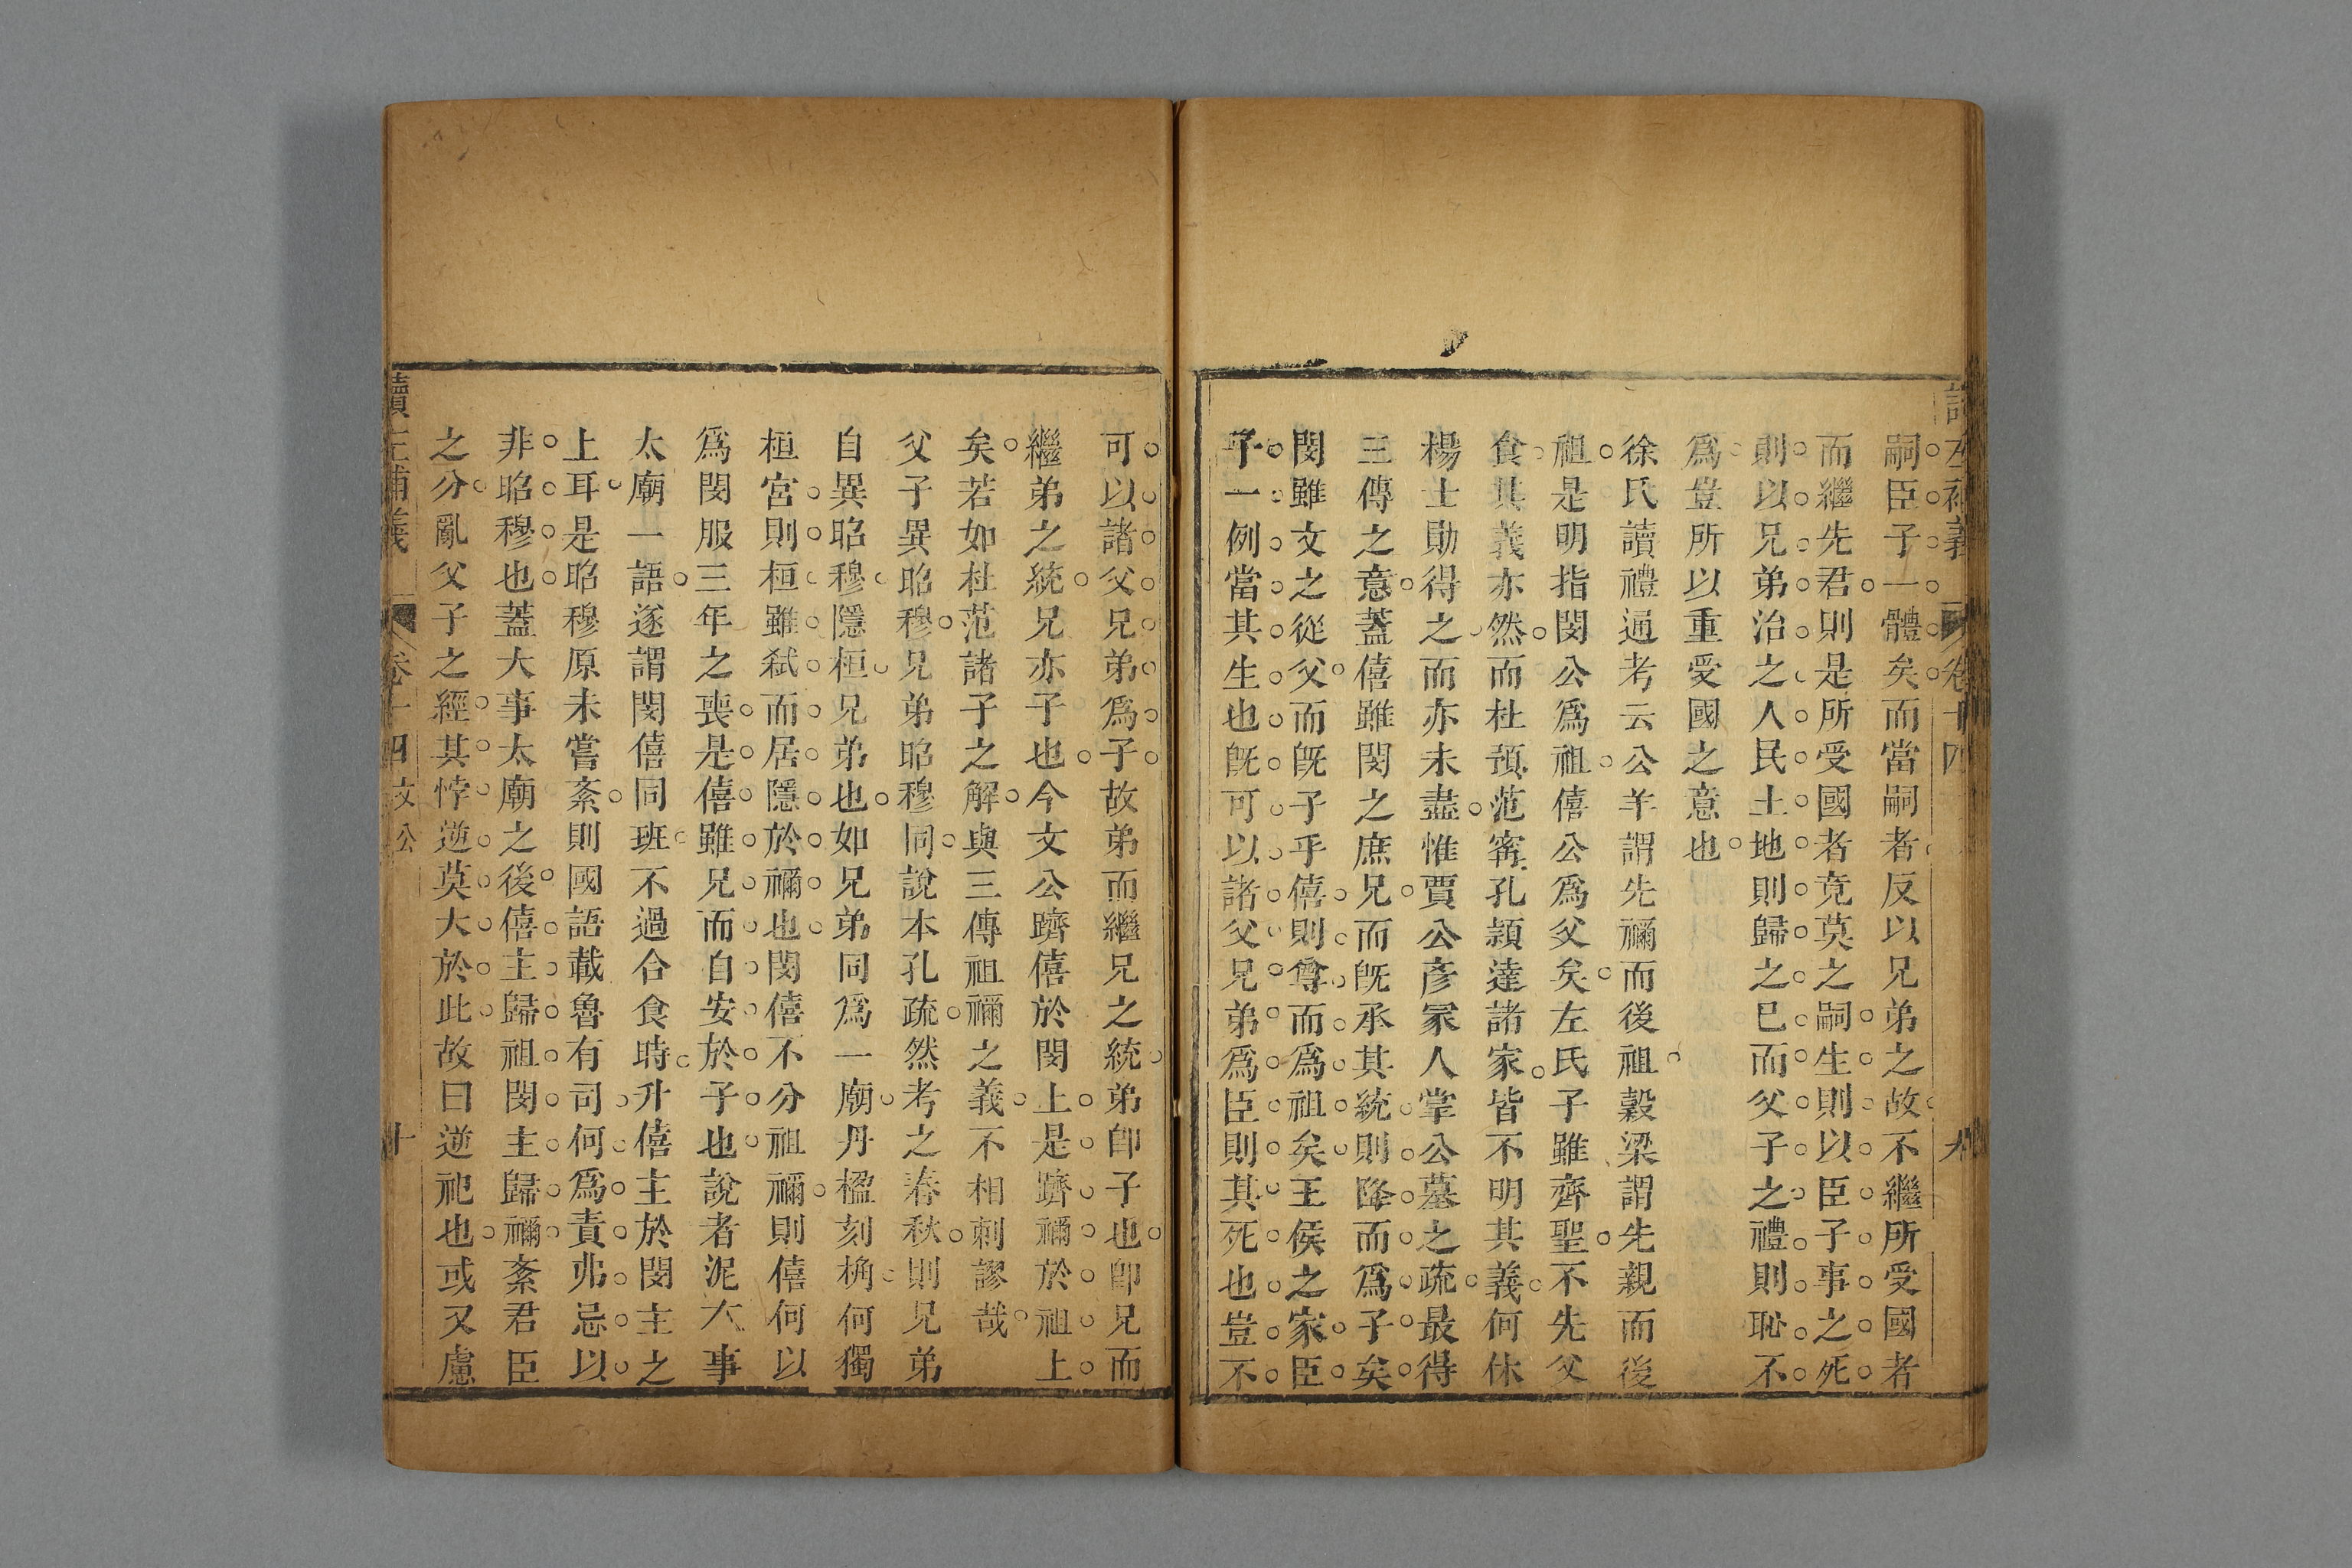 嗣臣子一體矣而當嗣者反以兄弟之故不繼所受國者
而繼先君則是所受國者竟莫之嗣生則以臣子事之死
則以兄弟治之人民土地則歸之已而父子之禮則恥不
爲豈所以重受國之意也
徐氏讀禮通考云公羊謂先禰而後祖穀梁謂先親而後
祖是明指閔公爲祖僖公爲父矣左氏子雖齊聖不先父
食其義亦然而杜預范甯孔穎達諸家皆不明其義何休
楊士勛得之而亦未盡惟賈公彥冢人掌公墓之疏最得
三傳之意蓋僖雖閔之庶兄而旣承其統則降而爲子矣
閔雖文之從父而旣子乎僖則尊而爲祖矣王侯之家臣
子一例當其生也旣可以諸父兄弟爲臣則其死也豈不
可以諸父兄弟爲子故弟而繼兄之統弟卽子也卽兄而
繼弟之統兄亦子也今文公躋僖於閔上是躋禰於祖上
矣若如杜范諸子之解與三傳祖禰之義不相剌謬哉
父子異昭穆兄弟昭穆同說本孔疏然考之春秋則兄弟
自異昭穆隱桓兄弟也如兄弟同爲一廟丹楹刻桷何獨
桓宮則桓雖弑而居隱於禰也閔僖不分祖禰則僖何以
爲閔服三年之喪是僖雖兄而自安於子也說者泥大事
太廟一語遂謂閔僖同班不過合食時升僖主於閔主之
上耳是昭穆原未嘗紊則國語載魯有司何爲責弗忌以
非昭穆也蓋大事太廟之後僖主歸祖閔主歸禰紊君臣
之分亂父子之經其悖逆莫大於此故曰逆祀也或又慮
讀左補義 卷十四 文公 十